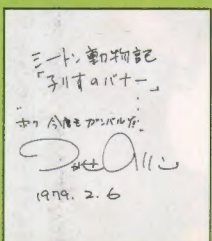 シートン動物記
「子りすのバナー」
"ボク 今度も ガンバルぞ"
1979. 2. 6